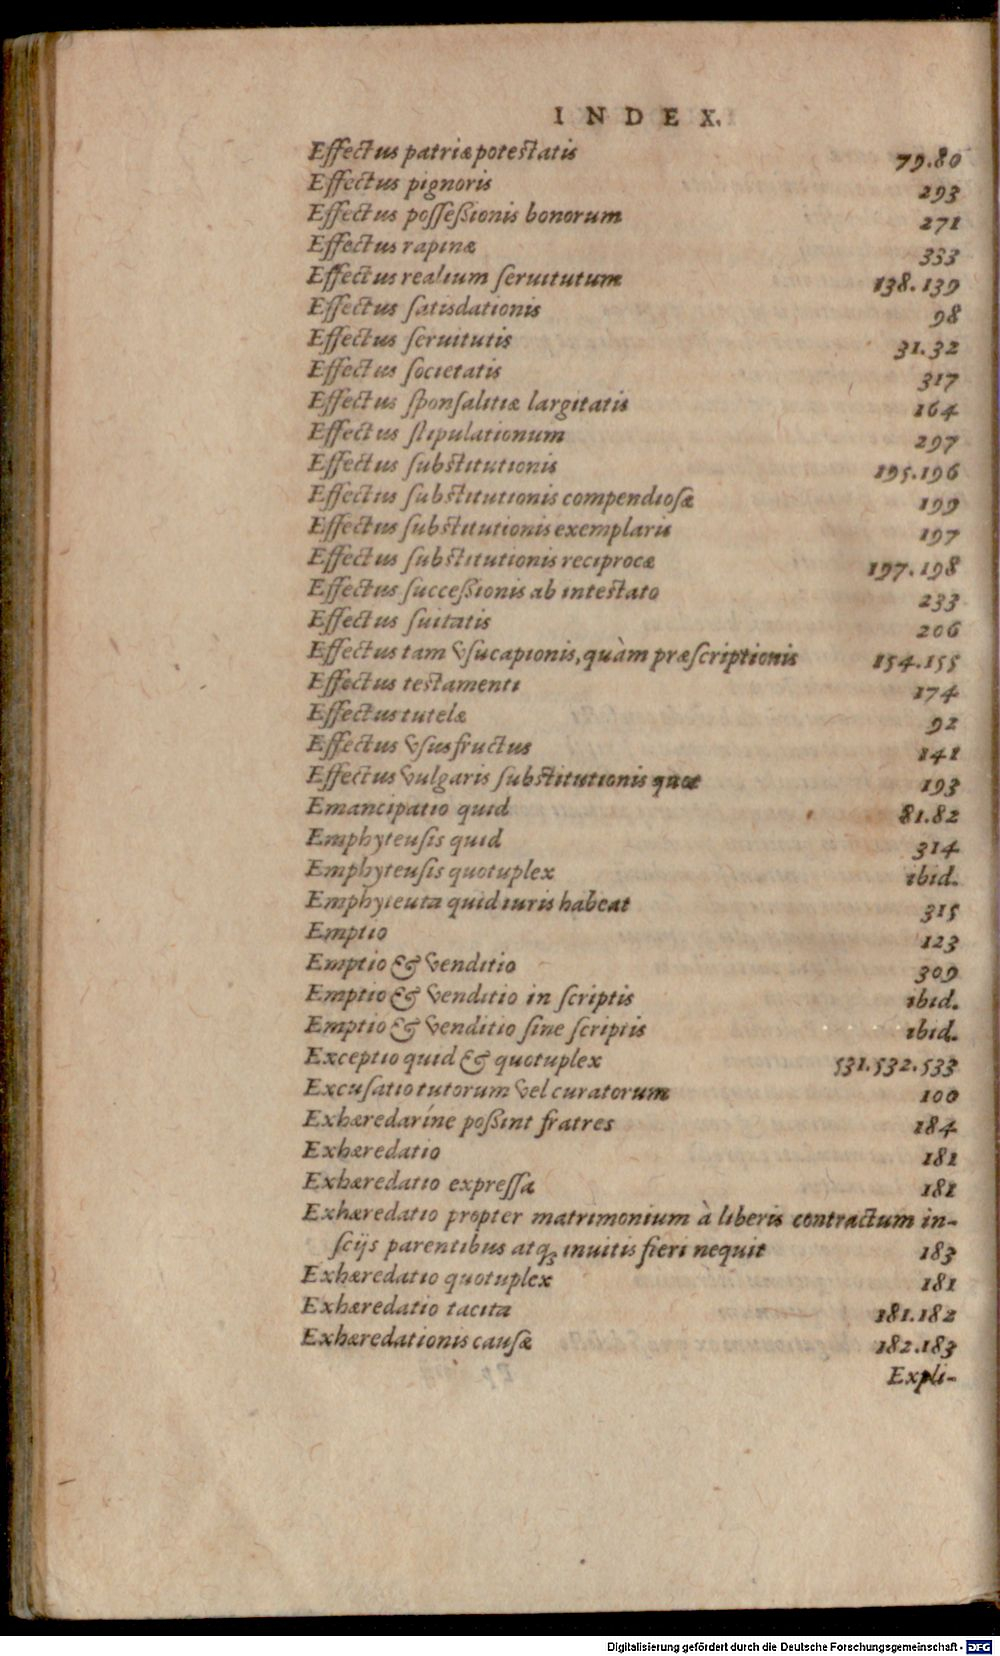 INDEX.
Effectus patriæ potestatis 79.80
Effectus pignoris 293
Effectus poſſeßionis bonorum 271
Effectus rapinæ 333
Effectus realium ſeruitutum 138.139
Effectus ſatisdationis 98
Effectus ſeruitutis 31.32
Effectus ſocietatis 317
Effectus ſponſalitiæ largitatis 164
Effectus ſtipulationum 297
Effectus ſubſtitutionis 195.196
Effectus ſubſtitutionis compendioſæ 199
Effectus ſubſtitutionis exemplaris 197
Effectus ſubſtitutionis reciprocæ 197.198
Effectus ſucceßionis ab inteſtato 233
Effectus ſuitatis 206
Effectus tam vſucapionis, quàm præſcriptionis 154.155
Effectus teſtamenti 174
Effectus tutelæ 92
Effectus vſusfructus 141
Effectus vulgaris ſubſtitutionis quæ 193
Emancipatio quid 81.82
Emphyteuſis quid 314
Emphyteuſis quotuplex ibid.
Emphyteuta quid iuris habeat 315
Emptio 123
Emptio & venditio 309
Emptio & venditio in ſcriptis ibid.
Emptio & venditio ſine ſcriptis ibid.
Exceptio quid & quotuplex 531.532.533
Excuſatio tutorum vel curatorum 100
Exhæredaríne poßint fratres 184
Exhæredatio 181
Exhæredatio expreſſa 181
Exhæredatio propter matrimonium à liberis contractum in-
ſcijs parentibus atq; inuitis fieri nequit 183
Exhæredatio quotuplex 181
Exhæredatio tacita 181.182
Exhæredationis cauſæ 182.183
Expli-
Digitalisierung gefördert durch die Deutsche Forschungsgemeinschaft - DFG